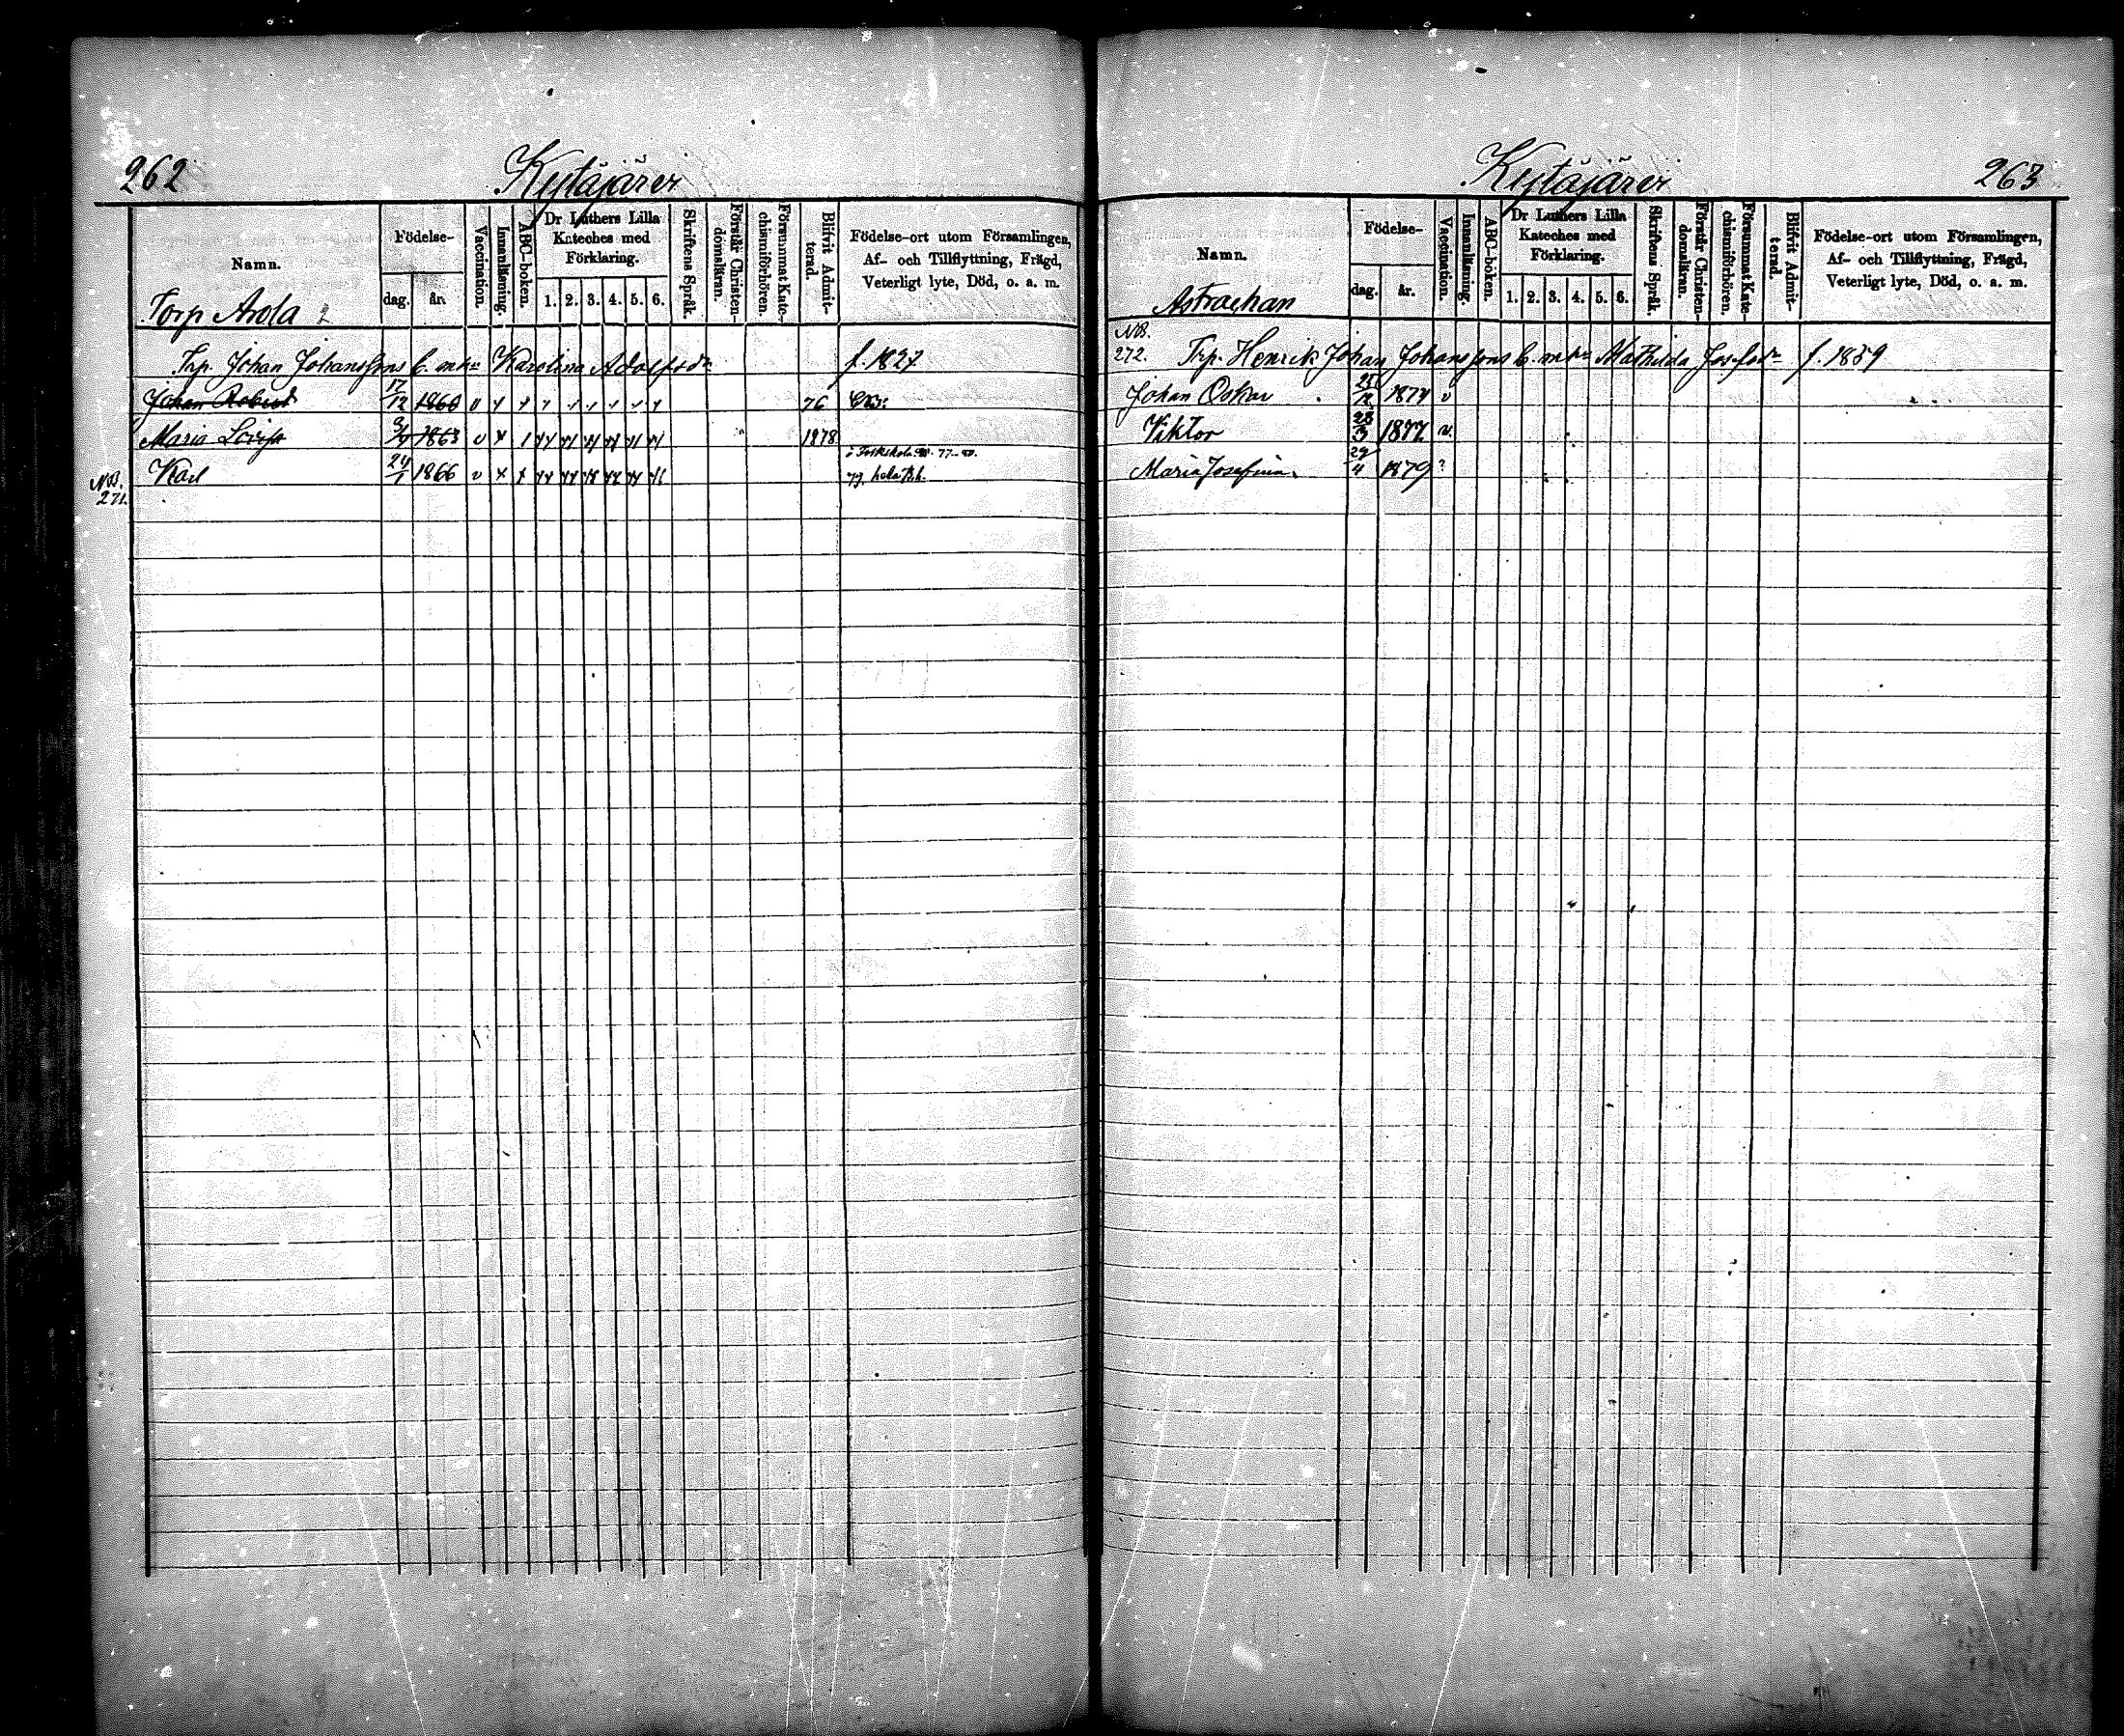 262
Kytäjärvi
Namn.
Födelse-
dag.
år.
Vaccination.
Innanläsning.
ABC-boken.
Dr Luthers Lilla
Kateches med
Förklaring.
1. 2. 3. 4. 5. 6.
Skriftens Språk.
Förstår Christen-
domsläran.
Försummat Kate-
chismiförhören.
Blifvit Admit-
terad.
Födelse-ort utom Församlingen,
Af- och Tillflyttning, Frägd,
Veterligt lyte, Död, o. a. m.
Torp Arola 2
Trp. Johan Johanssons b. m. h. Karolina Adolfsdr f. 1827
Johan Robert 17/12 1860 v 76
Maria Lovisa 3/4 1863 v 1878
i Folkskola 77
NB. 271. Karl 24/1 1866 v
263
Kytäjärvi
Namn.
Födelse-
dag.
år.
Vaccination.
Innanläsning.
ABC-boken.
Dr Luthers Lilla
Kateches med
Förklaring.
1. 2. 3. 4. 5. 6.
Skriftens Språk.
Förstår Christen-
domsläran.
Försummat Kate-
chismiförhören.
Blifvit Admit-
terad.
Födelse-ort utom Församlingen,
Af- och Tillflyttning, Frägd,
Veterligt lyte, Död, o. a. m.
Astrachan
NB.
272. Trp. Henrik Johan Johanssons b. m. h. Mathilda Josefsdr f. 1839
Johan Oskar 1874 v
Viktor 28/3 1877 v.
Maria Josefina. 29/4 1879 ?